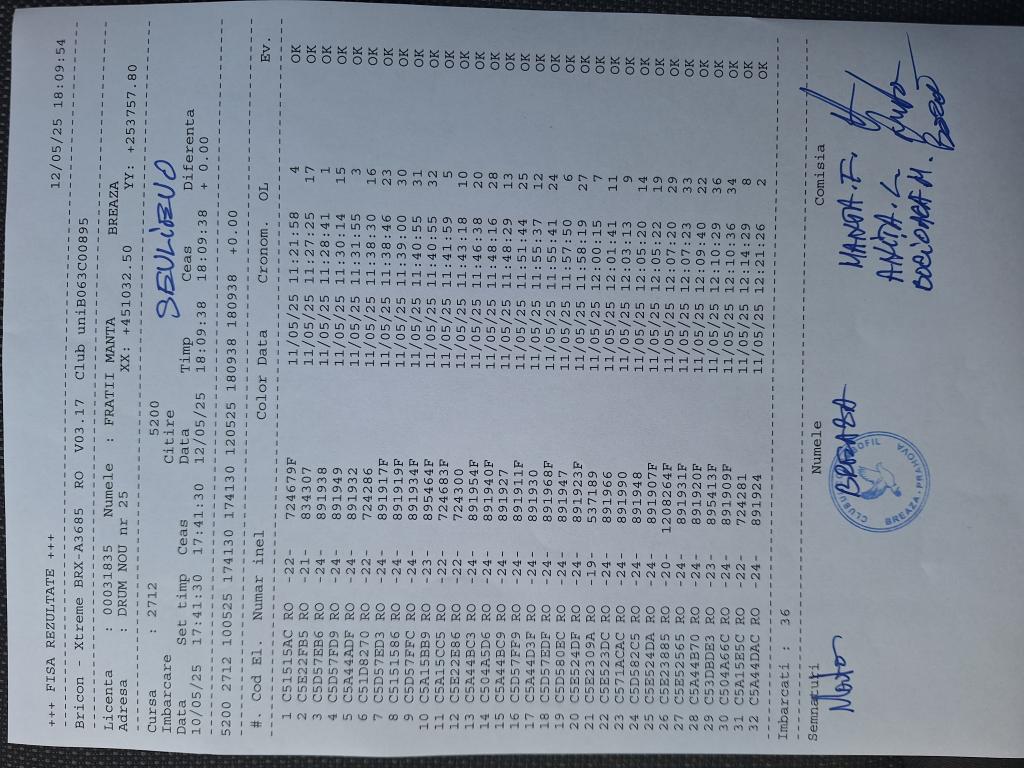 +++ FISA REZULTATE +++ 12/05/25 18:09:54
Bricon - Xtreme BRX-A3685 RO V03.17 Club uniB063C00895
Licenta : 00031835 Numele : FRATII MANTA
Adresa : DRUM NOU nr 25 BREAZA
XX: +451032.50 YY: +253757.80
Cursa : 2712 5200 SEULIEUO
Imbarcare Citire
Data Set timp Ceas Data Timp Ceas Diferenta
10/05/25 17:41:30 17:41:30 12/05/25 18:09:38 18:09:38 + 0.00
5200 2712 100525 174130 174130 120525 180938 180938 +0.00
#. Cod El. Numar inel Color Data Cronom. OL Ev.
1 C51515AC RO -22- 724679F 11/05/25 11:21:58 4 OK
2 C5E22FB5 RO -21- 834307 11/05/25 11:27:25 17 OK
3 C5D57EB6 RO -24- 891938 11/05/25 11:28:41 1 OK
4 C5D57FD9 RO -24- 891949 11/05/25 11:30:14 15 OK
5 C5A44ADF RO -24- 891932 11/05/25 11:31:55 3 OK
6 C51D8270 RO -22- 724286 11/05/25 11:38:30 16 OK
7 C5D57ED3 RO -24- 891917F 11/05/25 11:38:46 23 OK
8 C5151586 RO -24- 891919F 11/05/25 11:39:00 30 OK
9 C5D57FFC RO -24- 891934F 11/05/25 11:40:55 31 OK
10 C5A15BB9 RO -23- 895464F 11/05/25 11:40:55 32 OK
11 C5A15CC5 RO -22- 724683F 11/05/25 11:41:59 5 OK
12 C5E22E86 RO -22- 724300 11/05/25 11:43:18 10 OK
13 C5A44BC3 RO -24- 891954F 11/05/25 11:46:38 20 OK
14 C504A5D6 RO -24- 891940F 11/05/25 11:48:16 28 OK
15 C5A44BC9 RO -24- 891927 11/05/25 11:48:29 13 OK
16 C5D57FF9 RO -24- 891911F 11/05/25 11:51:44 25 OK
17 C51D4D3F RO -24- 891930 11/05/25 11:55:37 12 OK
18 C5D57EDF RO -24- 891968F 11/05/25 11:55:41 24 OK
19 C5D580EC RO -24- 891947 11/05/25 11:57:50 6 OK
20 C5E524DF RO -24- 891923F 11/05/25 11:58:19 27 OK
21 C5E2309A RO -19- 537189 11/05/25 12:00:15 7 OK
22 C5E523DC RO -24- 891966 11/05/25 12:01:41 11 OK
23 C571ACAC RO -24- 891990 11/05/25 12:03:13 9 OK
24 C5D582C5 RO -24- 891948 11/05/25 12:05:20 14 OK
25 C5E524DA RO -24- 891907F 11/05/25 12:05:22 19 OK
26 C5E23885 RO -20- 1208264F 11/05/25 12:07:20 29 OK
27 C5E52565 RO -24- 891931F 11/05/25 12:07:23 33 OK
28 C5A44B70 RO -24- 891920F 11/05/25 12:09:40 22 OK
29 C53DBDE3 RO -23- 895413F 11/05/25 12:10:29 36 OK
30 C504A66C RO -24- 891909F 11/05/25 12:10:36 34 OK
31 C5A15E5C RO -22- 724281 11/05/25 12:14:29 8 OK
32 C5A44DAC RO -24- 891924 11/05/25 12:21:26 2 OK
Imbarcati : 36
Semnaturi Numele Comisia
BREAZA MANTA.F
ANITA.L
BREAZA.PRAHOVA